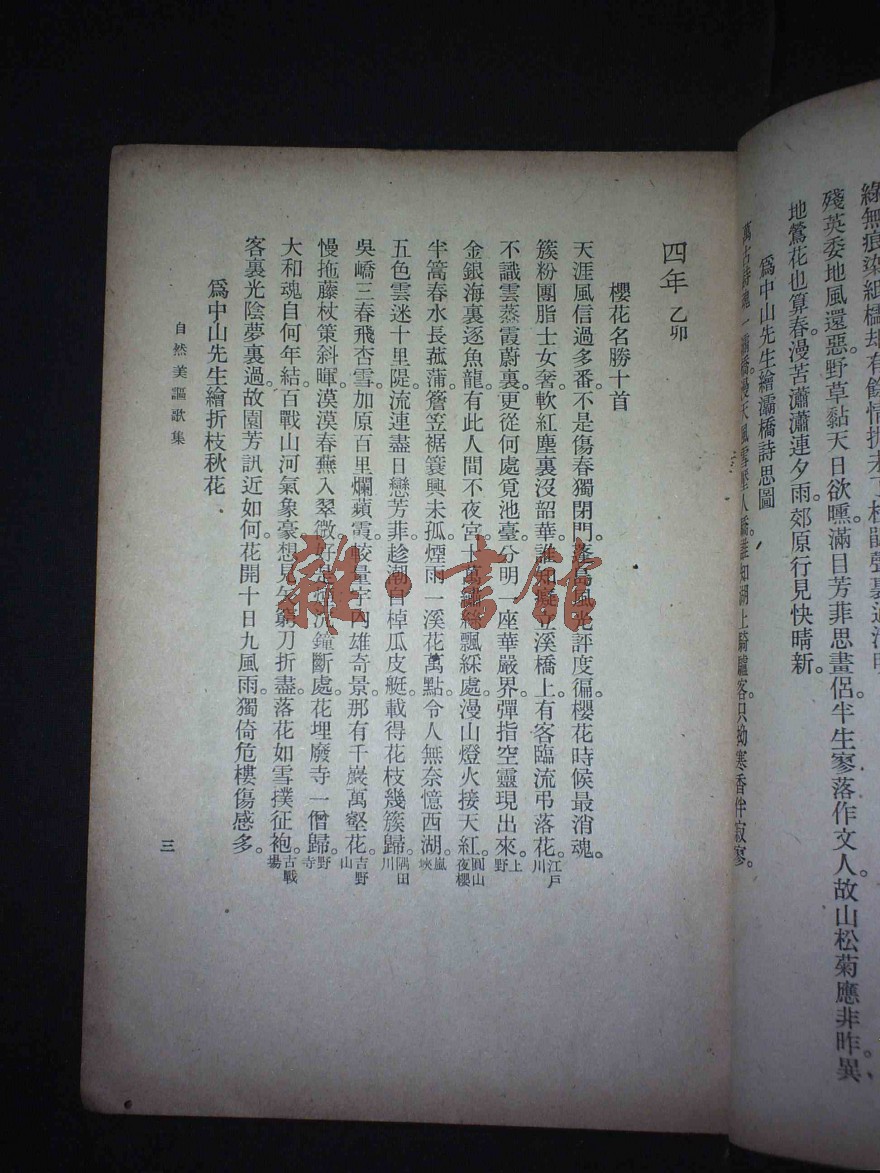 綠無痕染紙櫺却有餘情
殘英委地風還惡野草黏天日欲曛滿目芳菲思畫侶半生寥落作文人故山松菊應非昨異
地鶯花也算春漫苦瀟瀟連夕雨。郊原行見快晴新。
爲中山先生繪灞橋詩思圖
萬古詩魂一灞橋漫天風雪壓人驕湖上騎驢客只拗寒香伴寂寥。
四年 乙卯
櫻花名勝十首
天涯風信過多番。不是傷春獨閉門。蓬島風光評度偏。櫻花時候最消魂。
簇粉團脂士女奢。軟紅塵裏沒韶華。誰知癡立溪橋上。有客臨流弔落花。江戶川
不識雲蒸霞蔚裏。更從何處覓池臺。分明一座華嚴界。彈指空靈現出來。上野
金銀海裏逐魚龍。有此人間不夜宮。十萬繡絲飄綵處。漫山燈火接天紅。圓山夜櫻
半篙春水長菰蒲。簦笠裾簑興未孤。煙雨一溪花萬點。令人無奈憶西湖。嵐峽
五色雲迷十里隄。流連盡日戀芳菲。趁潮自棹瓜皮艇。載得花枝幾簇歸。隅田川
吳嶠三春飛杏雪。加原百里爛蘋霞。較量宇內雄奇景。那有千巖萬壑花。吉野山
慢拖藤杖策斜暉。漠漠春燕入翠微。好是鐘斷處。花埋廢寺一僧歸。野寺
大和魂自何年結。百戰山河氣象豪。想見矢窮刀折盡。落花如雪撲征袍。古戰場
客裏光陰夢裏過。故園芳訊近如何。花開十日九風雨。獨倚危樓傷感多。
爲中山先生繪折枝秋花
自然美謳歌集
三
雜·書館